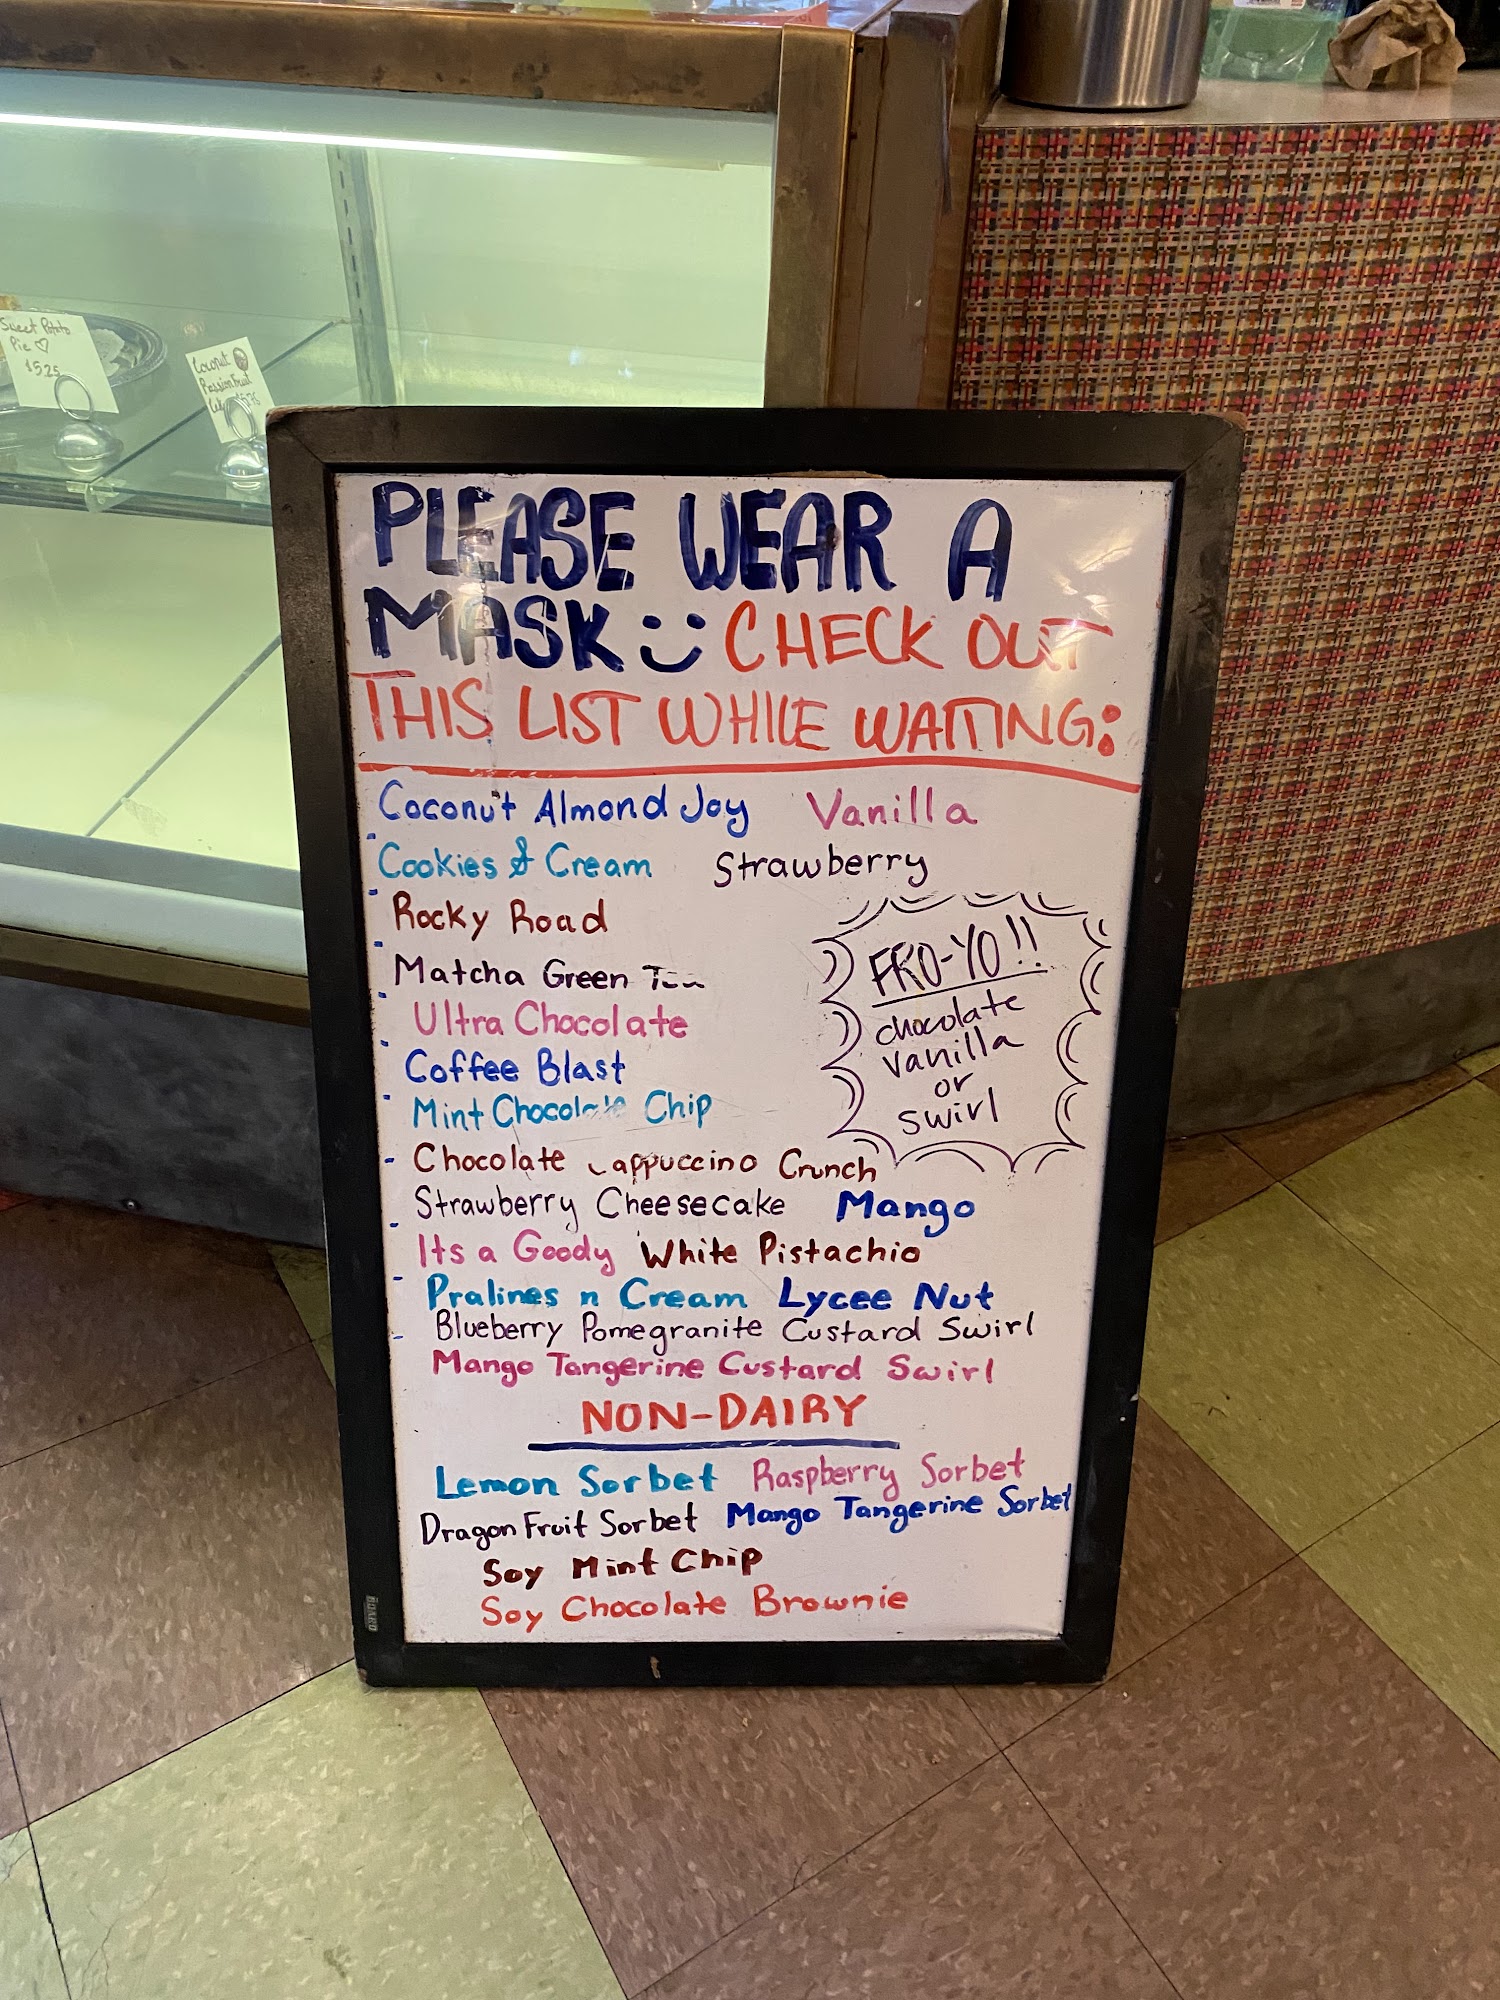 Sweet Potato
Pie ♡
$5.25
Coconut
Passionfruit
PLEASE WEAR A
MASK :) CHECK OUT
THIS LIST WHILE WAITING:
Coconut Almond Joy Vanilla
Cookies & Cream Strawberry
Rocky Road
Matcha Green
Ultra Chocolate
Coffee Blast
Mint Chocolate Chip
Chocolate Cappuccino Crunch
Strawberry Cheesecake Mango
Its a Goody White Pistachio
Pralines n Cream Lycee Nut
Blueberry Pomegranite Custard Swirl
Mango Tangerine Custard Swirl
FRO-YO!!
chocolate
vanilla
or
swirl
NON-DAIRY
Lemon Sorbet Raspberry Sorbet
Dragon Fruit Sorbet Mango Tangerine Sorbet
Soy Mint Chip
Soy Chocolate Brownie